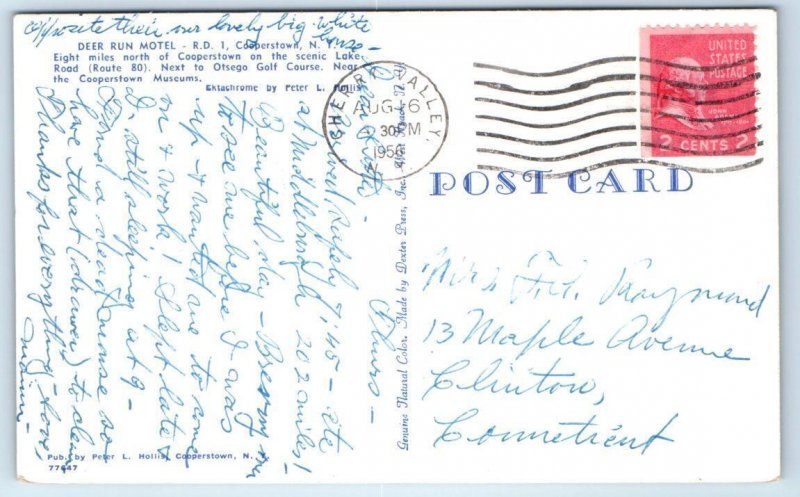 opposite their our lovely big white
house -
DEER RUN MOTEL - R.D. 1, Cooperstown, N. Y.
Eight miles north of Cooperstown on the scenic Lake
Road (Route 80). Next to Otsego Golf Course. Near
the Cooperstown Museums.
Ektachrome by Peter L. Hollis
CHERRY VALLEY,
AUG 6
30 PM
1956
N.
UNITED
STATES
POSTAGE
JOHN
2 CENTS 2
POST CARD
Thurs -
Arrived safely 7:45 - ate
at Middleburgh 202 miles!
Beautiful day -
to see me before I was
up & wanted me to come
in & work! Slept late &
still sleeping at 9 -
Found a dead mouse so
have that (drawer) to clean
Thanks for everything - love,
Genuine Natural Color. Made by Dexter Press, Inc., West Nyack, N.
Mrs. Raymond
13 Maple Avenue
Clinton,
Connecticut
Pub. by Peter L. Hollis, Cooperstown, N.
77647